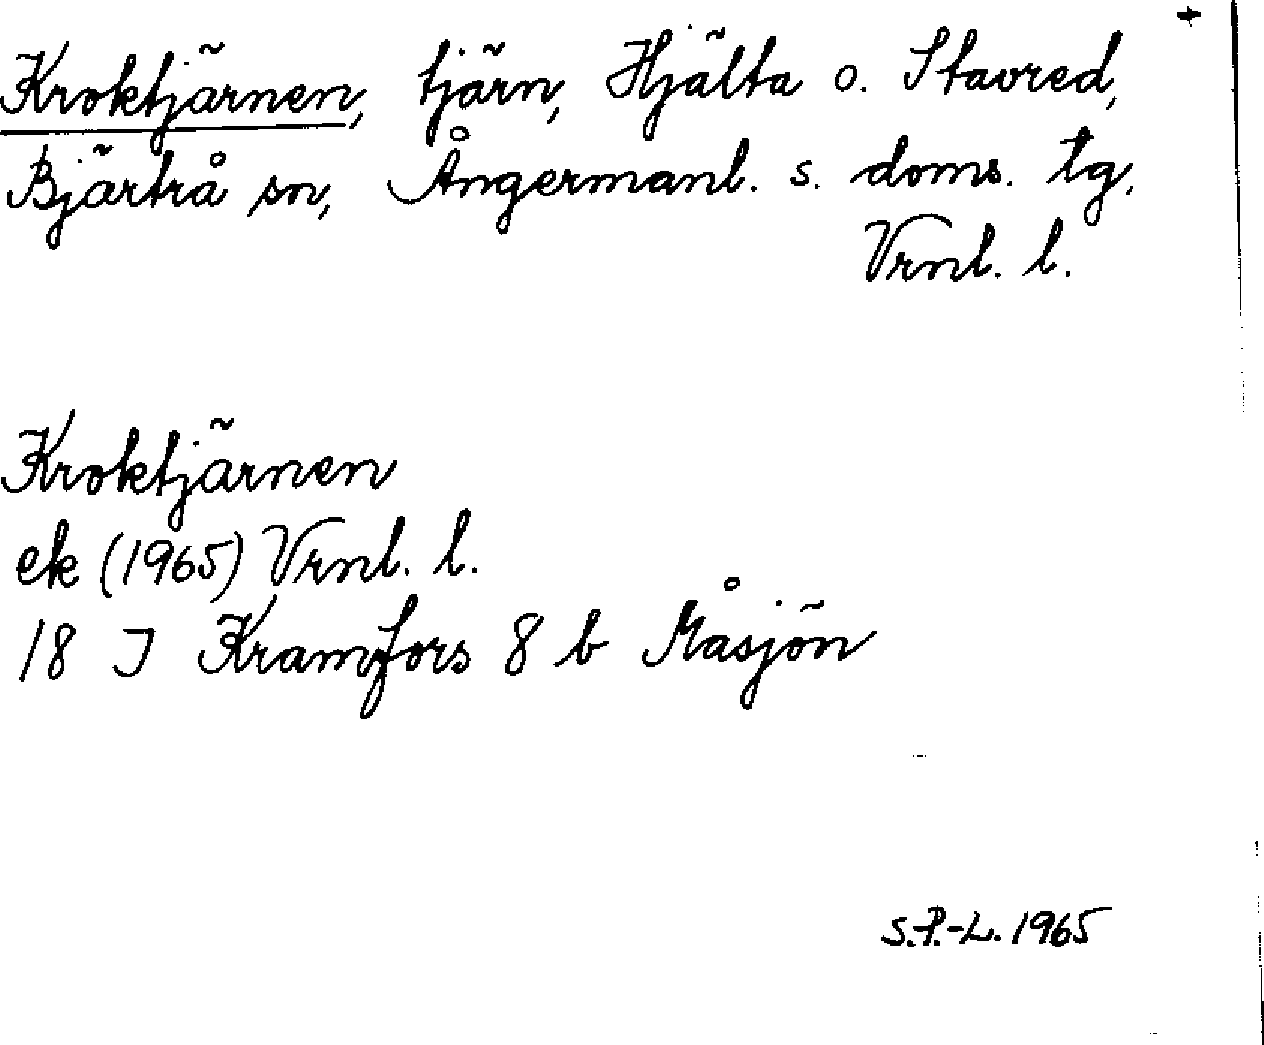 Kroktjärnen, tjärn, Hjälta o. Stavred,
Bjärtrå sn, Ångermanl. s. doms. tg.
Vrnl. l.
Kroktjärnen
ek (1965) Vrnl. l.
18 J Kramfors 8 b Måsjön
S.P.-L. 1965